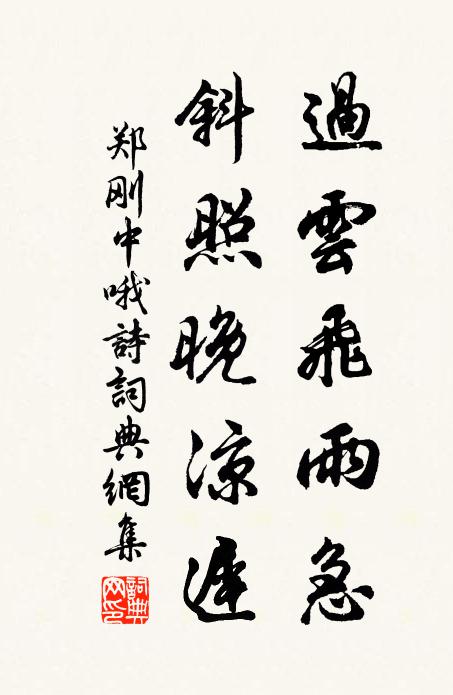 過雲飛雨急
斜照晚涼遲
郑刚中哦詩詞典網集
詞典网印